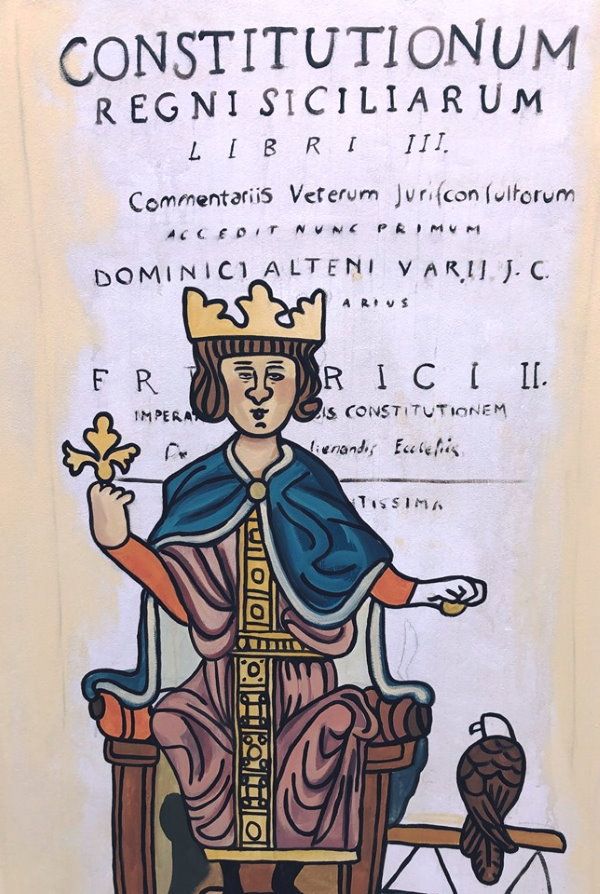 CONSTITUTIONUM
REGNI SICILIARUM
LIBRI III.
Commentariis Veterum Jurisconsultorum
ACCEDIT NUNC PRIMUM
DOMINICI ALTENI VARII J. C.
ARIUS
FR RICI II.
IMPERA IS CONSTITUTIONEM
lienandis Ecclesiis
TISSIMA